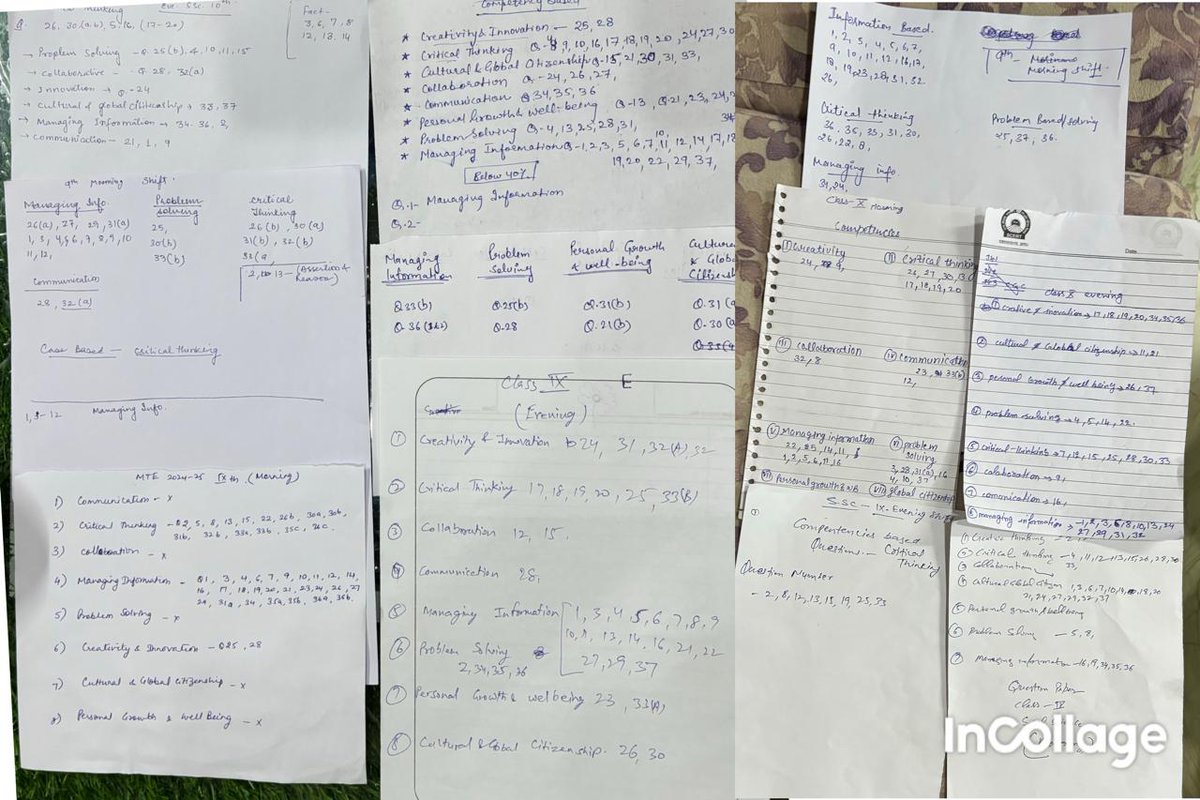 Thinking Eve. SSC 10th
Q. 26. 30.(a.b), 5, 16, (17-20)
Fact-
3, 6, 7, 8
12, 13, 14
→ Problem Solving - Q. 25(b), 4, 10, 11, 15
→ collaborative - Q. 28, 32(a)
→ Innovation → Q-24
→ Cultural & global citizenship → 35, 37
→ Managing Information → 34-36, 8,
→ Communication - 21, 1, 9
9th Morning Shift.
Managing Info
26(a), 27, 29, 31(a)
1, 3, 4, 5, 6, 7, 8, 9, 10
11, 12,
Problem-
solving
25,
30(b)
33(b)
critical
Thinking
26(b), 30(a)
31(b), 32(b)
33(a,
2, 13 - (Assertion &
Reason)
Communication
28, 32(a)
Case Based - Critical thinking
Managing Info.
MTE 2024-25 IXth (Morning)
1) Communication - x
2) Critical Thinking - Q2, 5, 8, 13, 15, 22, 26b, 30a, 30b,
31b, 32b, 33a, 33b, 35c, 36c.
3) collaboration - x
4) Managing Information - Q1, 3, 4, 6, 7, 9, 10, 11, 12, 14,
16, 17, 18, 19, 20, 21, 23, 24, 26, 27
29, 31a, 34, 35a, 35b, 36a, 36b.
5) Problem Solving - x
6) Creativity & Innovation - Q25, 28
7) Cultural & Global Citizenship - x
8) Personal Growth & Well Being - x
Competency Based
* Creativity & Innovation - 25, 28
* Critical Thinking Q-8, 9, 10, 16, 17, 18, 19, 20, 24, 27, 30
* Cultural & Global Citizenship Q-15, 21, 30, 31, 33,
* Collaboration Q-24, 26, 27,
* Communication Q 34, 35, 36
* Personal Growth & Well-being Q-13, Q-21, 23, 24,
* Problem Solving Q-4, 13, 25, 28, 31,
* Managing Information Q-1, 2, 3, 5, 6, 7, 10, 11, 12, 14, 17, 18
19, 20, 22, 29, 37,
Below 40%
Q.1- Managing Information
Q.2-
Managing
Information
Q33(b)
Q.36
Problem
Solving
Q25(b)
Q.28
Personal Growth
& well-being
Q.31(b)
Q.21(b)
Cultural
& Global
Citizenship
Q.31(a
Q.30(a
Class IX E
(Evening)
① Creativity & Innovation 24, 31, 32(A), 32
② Critical Thinking 17, 18, 19, 20, 25, 33(B)
③ Collaboration 12, 15.
④ Communication 28,
⑤ Managing Information 1, 3, 4, 5, 6, 7, 8, 9
10, 11, 13, 14, 16, 21, 22
27, 29, 37
⑥ Problem Solving
2, 34, 35, 36
⑦ Personal Growth & wellbeing 23, 33(A)
⑧ Cultural & Global Citizenship. 26, 30
Information Based.
1, 2, 5, 4, 5, 6, 7,
9, 10, 11, 12, 16, 17,
18, 19, 23, 28, 31, 32
26,
9th -
Morning shift.
Critical thinking
36, 35, 33, 31, 30,
26, 22, 8,
Problem Based/solving
25, 37, 36.
Managing info.
34, 24.
Class-X Morning
Competencies
① Creativity
24, 4,
② Critical thinking
26, 27, 30, 13
17, 18, 19, 20
III Collaboration
32, 8
IV Communication
23, 33(b)
12,
V Managing information
22, 25, 14, 11,
1, 2, 5, 6, 11, 16
VI problem
solving
3, 28, 31(a), 16
4, 10, 37
VII Personal growth & WB
VIII global citizenship
Date
class X evening
① creative & inovation → 17, 18, 19, 20, 34, 35, 36
② cultural & Global citizenship → 11, 21
③ personal Growth & well being → 26, 37
④ problem solving → 4, 5, 14, 22
⑤ critical-thinking → 7, 12, 15, 25, 28, 30, 33
⑥ colaboration → 9,
⑦ comunication → 16,
⑧ managing information → 1, 2, 3, 6, 8, 10, 13, 24
27, 29, 31, 32
S.SC - IX-Evening Shift
Compentencies based
Question - Critical
Thinking
Question Number
- 2, 8, 12, 13, 15, 19, 25, 33
① Creative Thinking
② Critical thinking - 4, 11, 12 - 13, 15, 26, 28, 30
33
③ Collaboration
④ Cultural Global citizen 1, 3, 6, 7, 10, 14, 18, 20
21, 24, 27, 29, 32, 37
⑤ Personal growth & wellbeing
⑥ Problem Solving - 5, 8,
⑦ Managing information - 16, 9, 34, 35, 36
Question Paper
Class - IX
InCollage